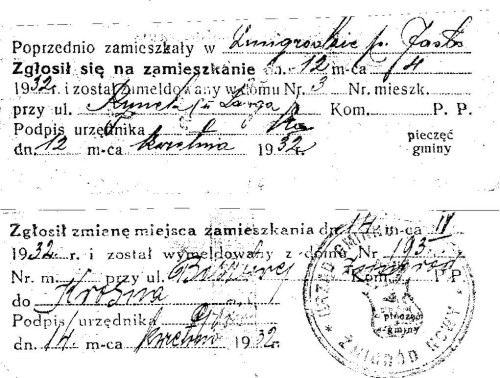 Poprzednio zamieszkały w Żmigrodzie p. Jasło
Zgłosił się na zamieszkanie dn. 12 m-ca 4
1932 r. i został zameldowany w domu Nr. 3 Nr. mieszk.
przy ul. Rynek Kom. P. P.
Podpis urzędnika
dn. 12 m-ca kwietnia 1932 r.
pieczęć
gminy
Zgłosił zmienę miejsca zamieszkania dn. 14 m-ca IV
1932 r. i został wymeldowany z domu Nr 193
Nr. m. przy ul. Kom. P P
do Krosna
Podpis urzędnika
dn. 14 m-ca kwietnia 1932 r.
URZĄD GMINY ŻMIGRÓD NOWY
pieczęć
gminy